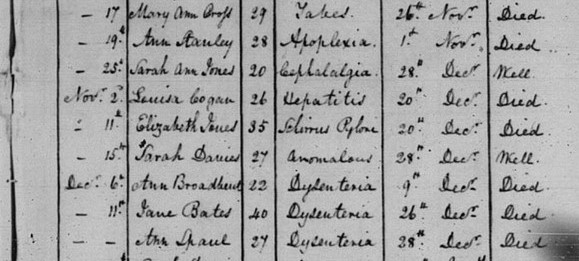 – 17 Mary Ann Cross 29 Tabes. 26th Novr. Died.
– 19th Ann Stanley 28 Apoplexia. 1st Novr. Died
– 25th Sarah Ann Jones 20 Cephalalgia. 28th Decr. Well.
Novr. 2d. Louisa Cogan 26 Hepatitis 20th Decr. Died.
– 11th Elizabeth Jones 35 Schirrus Pylori 20th Decr. Died.
– 15th Sarah Davies 27 Anomalous 28th Decr. Well.
Decr. 6th Ann Broadhurst 22 Dysenteria 9th Decr. Died
– 11th Jane Bates 40 Dysenteria 26th Decr. Died
– – Ann 27 Dysenteria 28th Decr. Died